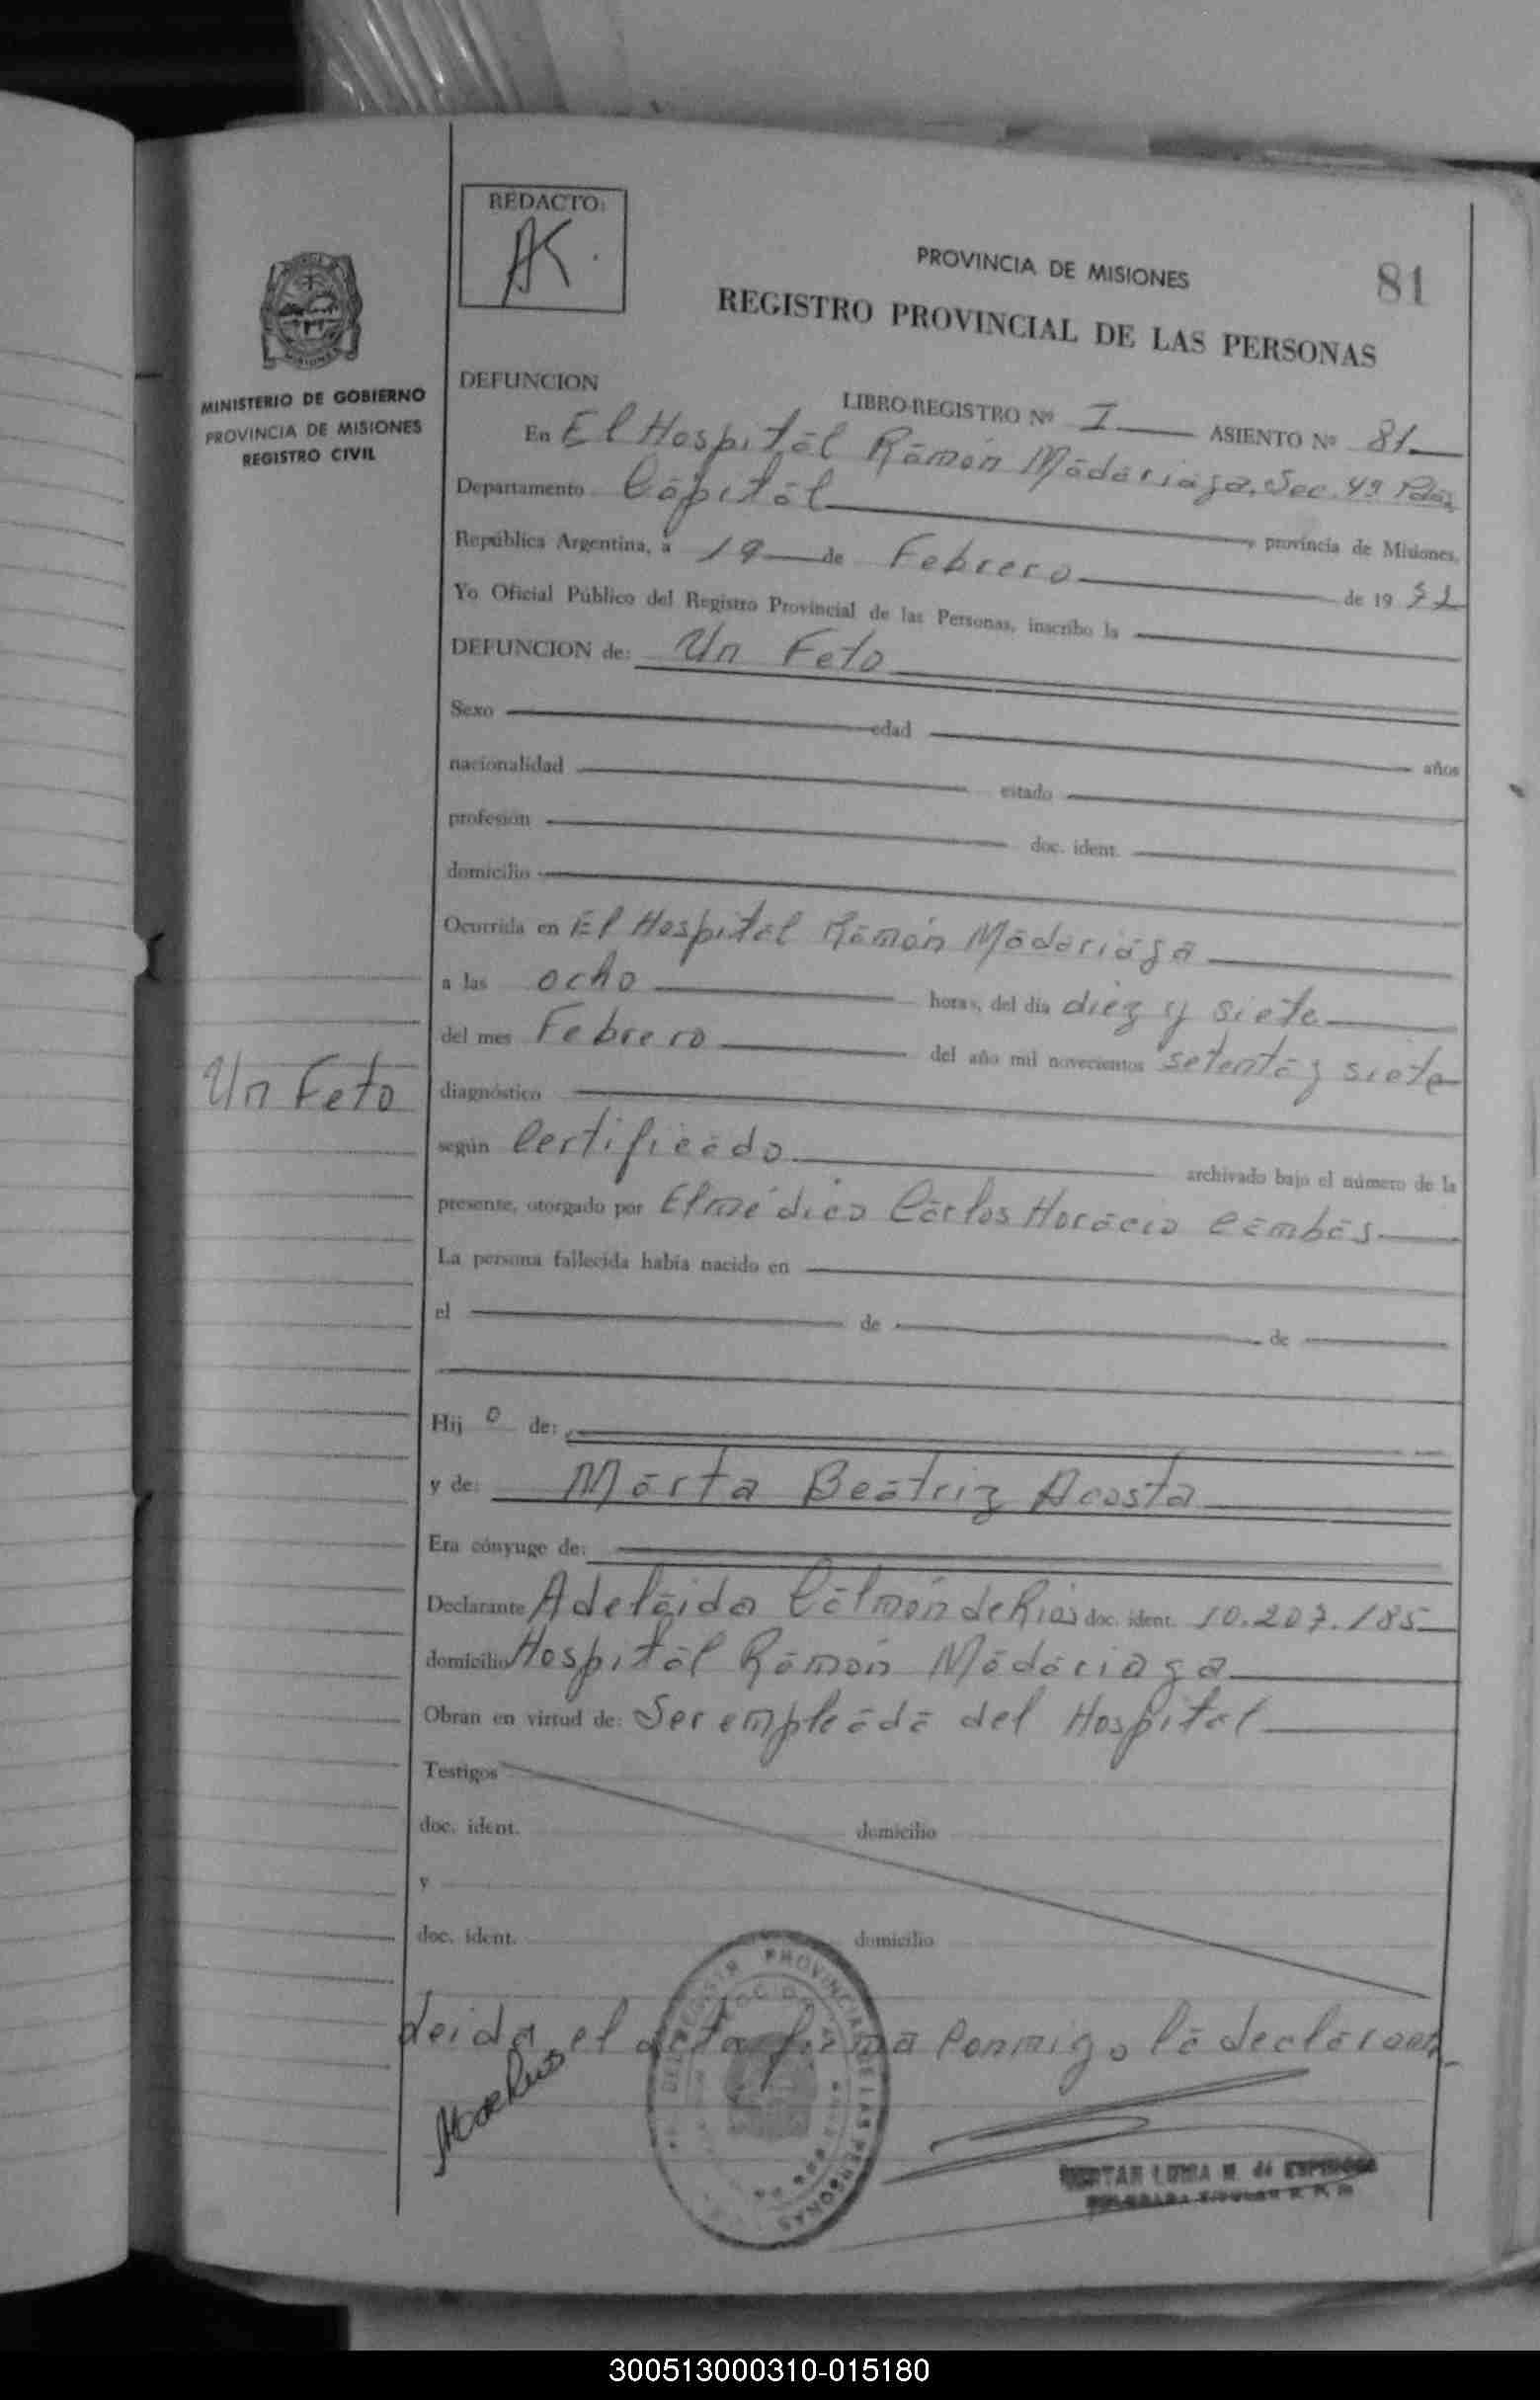 REDACTO:
AK.
PROVINCIA DE MISIONES
81
REGISTRO PROVINCIAL DE LAS PERSONAS
MINISTERIO DE GOBIERNO
PROVINCIA DE MISIONES
REGISTRO CIVIL
DEFUNCION
LIBRO-REGISTRO Nº I ASIENTO Nº 81
En El Hospital Ramón Madariaga, Sec. 4ª Pdas,
Departamento Capital, provincia de Misiones,
República Argentina, a 19 de Febrero de 19 77
Yo Oficial Público del Registro Provincial de las Personas, inscribo la
DEFUNCION de: Un Feto
Sexo edad años
nacionalidad estado
profesión doc. ident.
domicilio
Ocurrida en El Hospital Ramón Madariaga
a las ocho horas, del día diez y siete
del mes Febrero del año mil novecientos setenta y siete
Un Feto
diagnóstico
según Certificado archivado bajo el número de la
presente, otorgado por El médico Carlos Horacio Cambas
La persona fallecida había nacido en
el de de
Hij o de:
y de: Marta Beatriz Acosta
Era cónyuge de:
Declarante Adelaida Calmón de Rios doc. ident. 10.207.185
domicilio Hospital Ramón Madariaga
Obran en virtud de: Ser empleada del Hospital
Testigos
doc. ident. domicilio
y
doc. ident. domicilio
Leida el acta firma Conmigo la declarante
PROVINCIAL DE LAS PERSONAS
LUISA M. de ESPINOSA
300513000310-015180